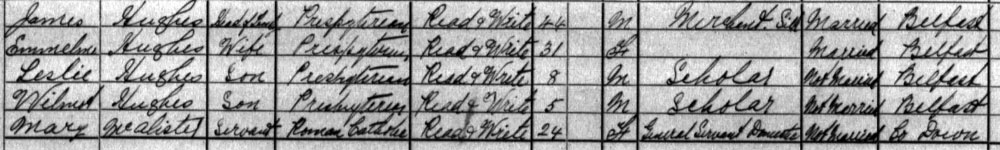 James Hughes Head of Family Presbyterian Read & Write 44 M Merchant Married Belfast
Emmeline Hughes Wife Presbyterian Read & Write 31 F Married Belfast
Leslie Hughes Son Presbyterian Read & Write 8 M Scholar Not Married Belfast
Wilmot Hughes Son Presbyterian Read & Write 5 M Scholar Not Married Belfast
Mary McAlister Servant Roman Catholic Read & Write 24 F General Servant Domestic Not Married Co Down